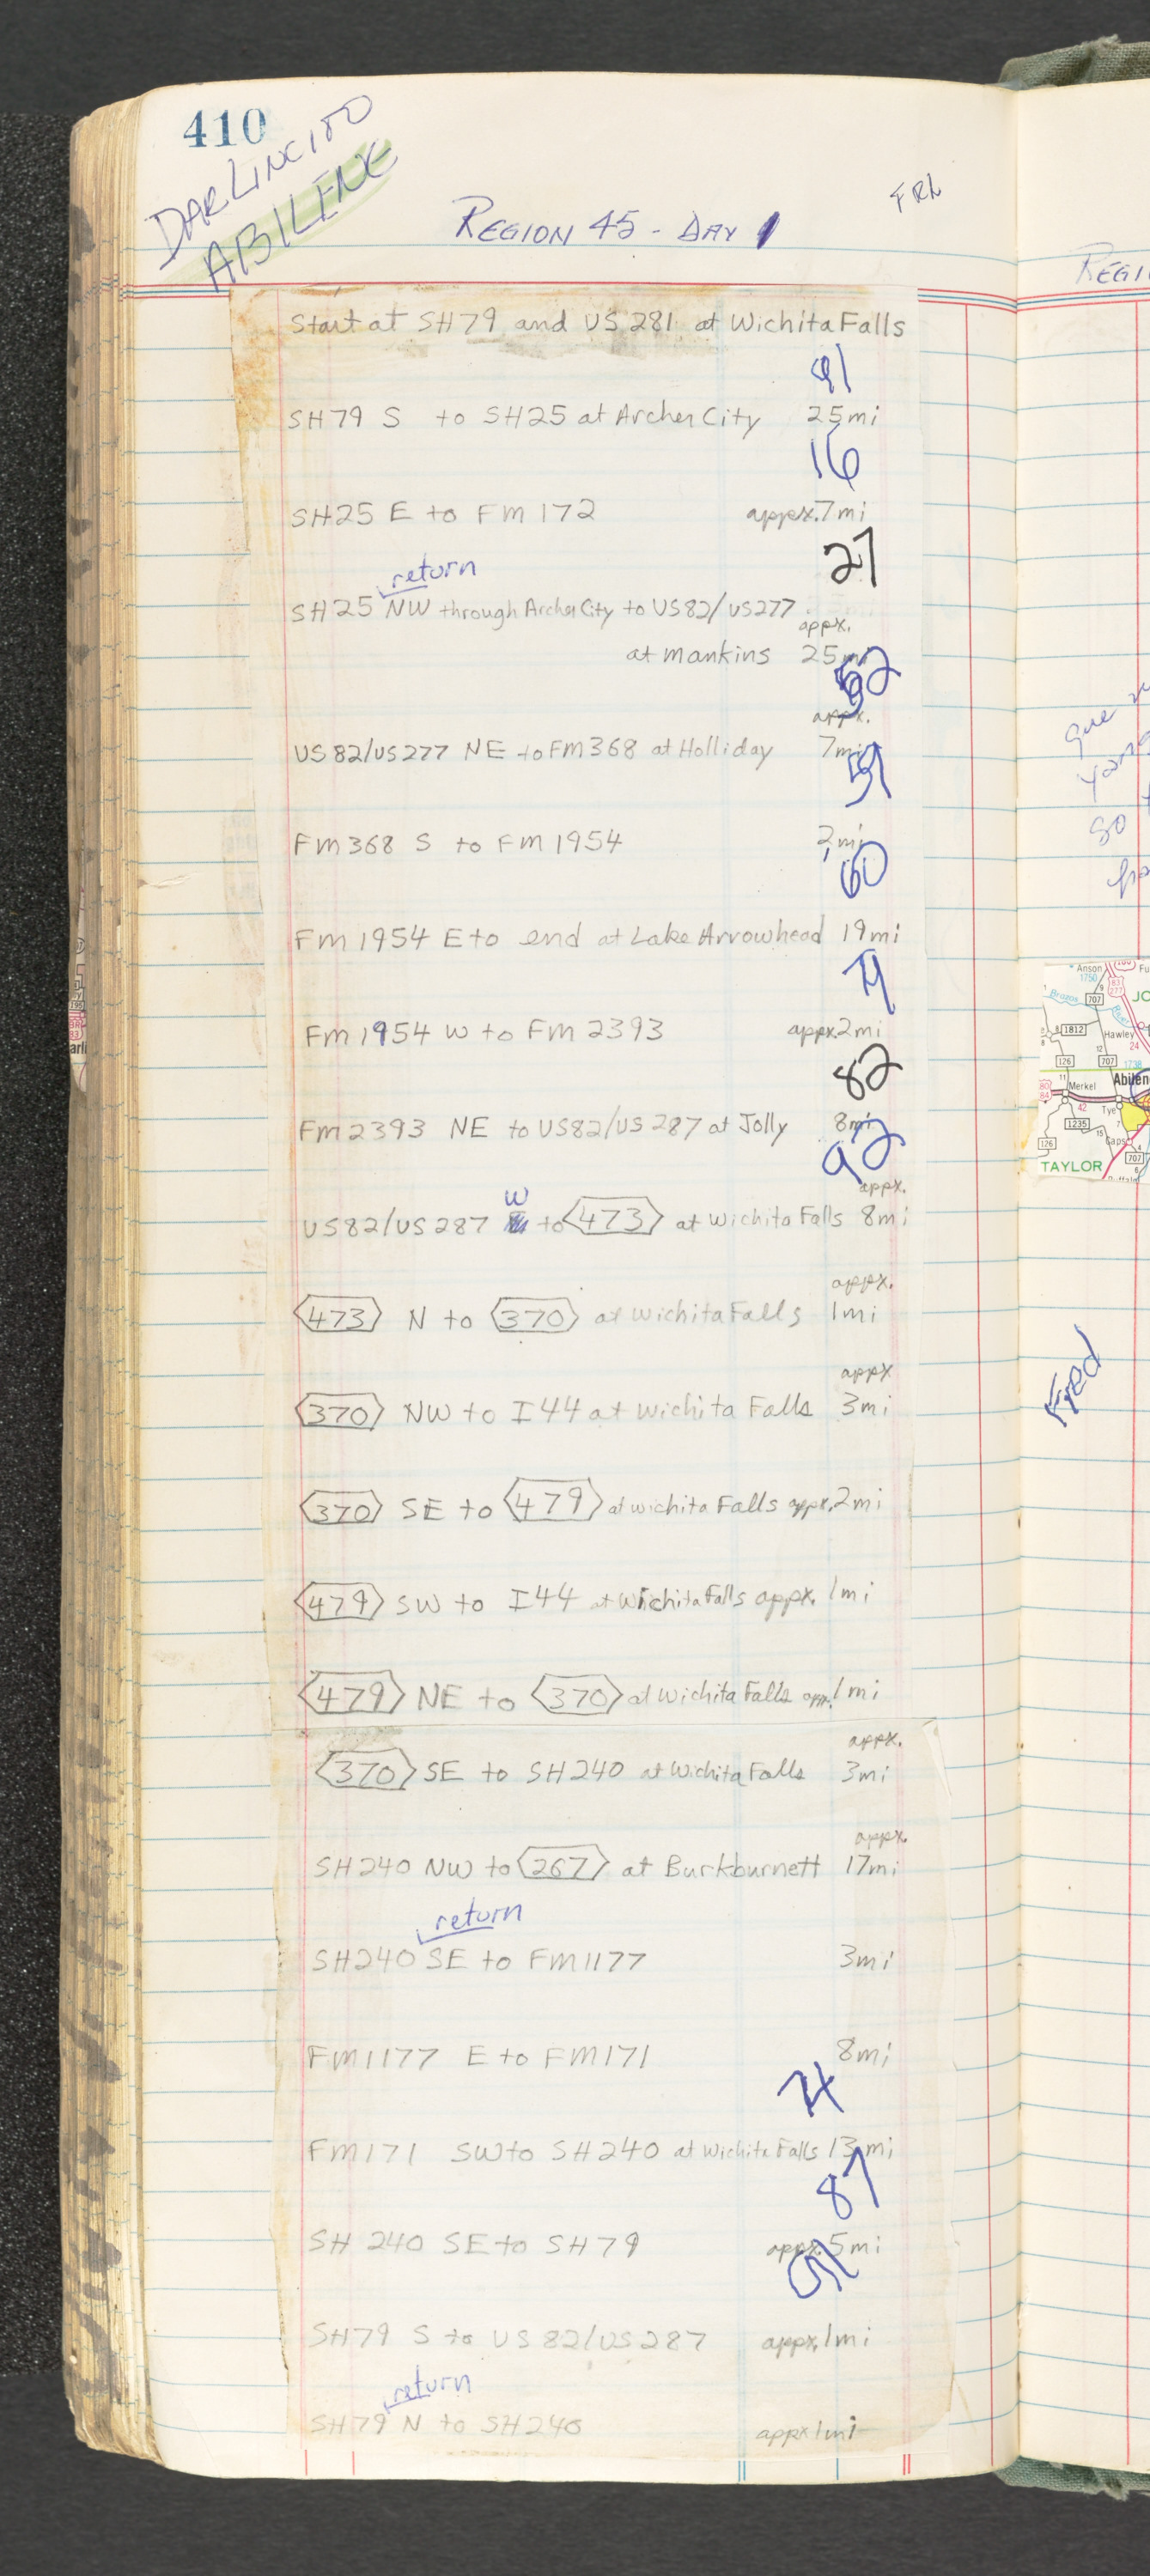 410
DARLINC180
ABILENE
FRL
REGION 45 - DAY 1
Start at SH79 and US 281 at Wichita Falls
91
SH79 S to SH25 at Archer City 25mi
16
SH25 E to FM 172 appx. 7mi
27
return
SH25 NW through Archer City to US82/US277
appx.
at Mankins 25mi
52
appx.
US82/US277 NE to FM368 at Holliday 7mi
59
FM368 S to FM1954 2mi
60
FM1954 E to end at Lake Arrowhead 19mi
79
FM1954 W to FM 2393 appx. 2mi
82
FM2393 NE to US82/US287 at Jolly 8mi
92
appx.
W
US82/US287 to 473 at Wichita Falls 8mi
appx.
473 N to 370 at Wichita Falls 1mi
appx
370 NW to I44 at Wichita Falls 3mi
370 SE to 479 at Wichita Falls appx. 2mi
479 SW to I44 at Wichita Falls appx. 1mi
479 NE to 370 at Wichita Falls appx. 1mi
appx.
370 SE to SH240 at Wichita Falls 3mi
appx.
SH240 NW to 267 at Burkburnett 17mi
return
SH240 SE to FM1177 3mi
FM1177 E to FM171 8mi
74
FM171 SW to SH240 at Wichita Falls 13mi
87
SH 240 SE to SH79 appx. 5mi
91
SH79 S to US82/US287 appx. 1mi
return
SH79 N to SH240 appx 1mi
REGI
que
so
Anson
1750
Brazos
707
83
277
JO
1812
Hawley
24
126
707
1738
Abilen
Merkel
Tye
42
1235
Caps
126
707
TAYLOR
Fred